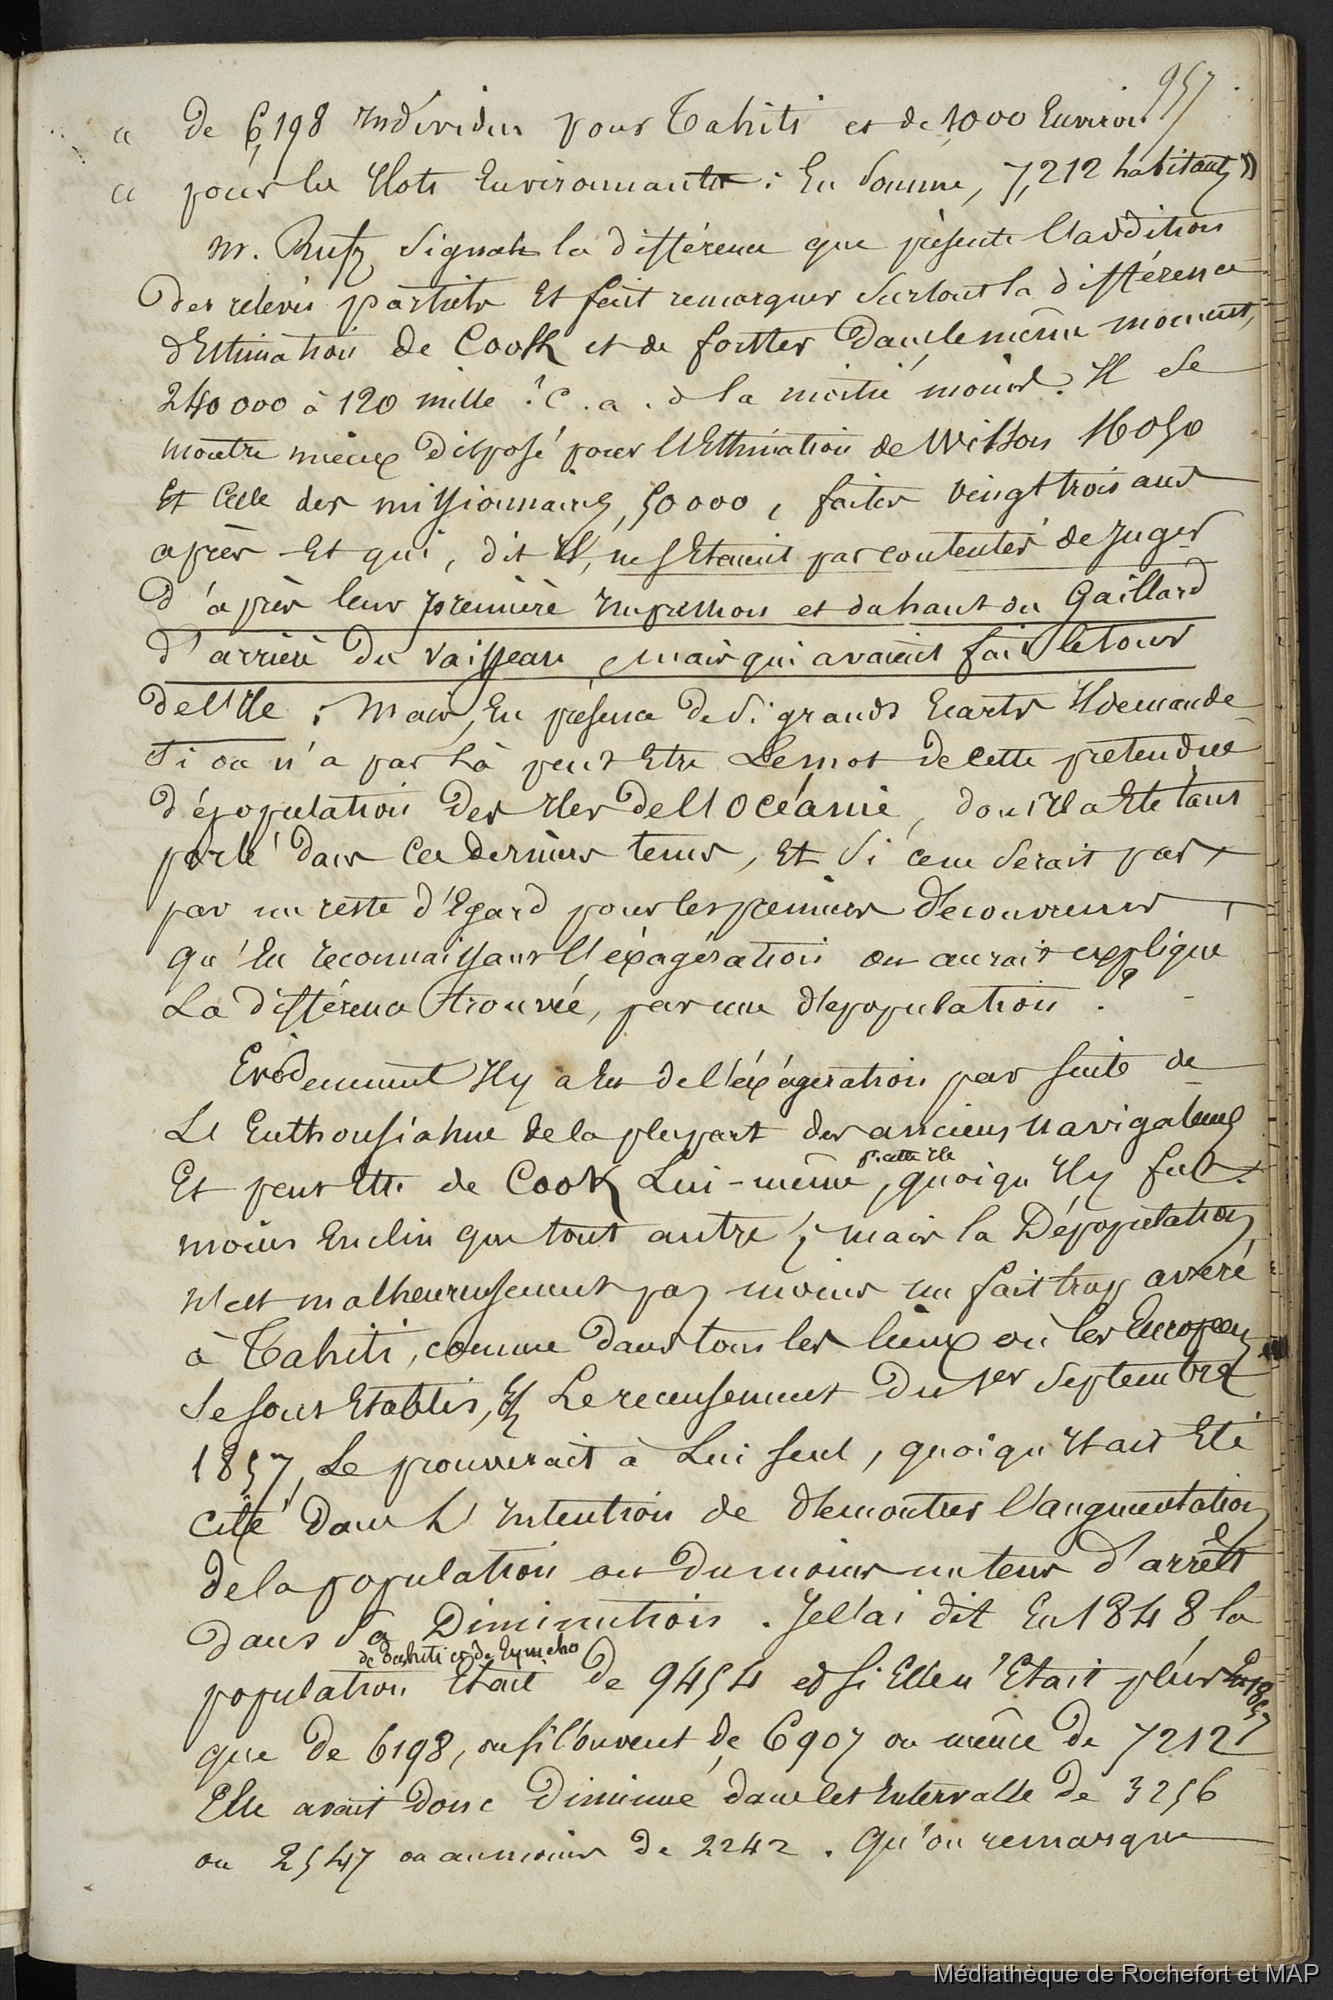 957
« de 6,198 Individus pour Tahiti et de 1000 Environ
« pour les Ilots Environnants : En Somme, 7,212 habitants »
Mr. Rufz Signale la différence que présente l'addition
des relevés partiels Et fait remarquer Surtout la différence
d'Estimation de Cook et de forster dans le même moment,
240000 à 120 mille ! C. a. d la moitié moins. Il Se
montre mieux disposé pour l'Estimation de Wilson 16050
Et Celle des missionnaires, 50000, faites vingt trois ans
après Et qui, dit Il, ne s'Etaient pas contentés de juger
d'après leur première Impression et du haut du Gaillard
d'arrière du vaisseau, mais qui avaient fait le tour
de l'Ile ; Mais, En présence de Si grands Ecarts Il demande
Si on n'a pas là peut Etre Le mot de cette prétendue
dépopulation des Iles de l'Océanie, dont Il a Eté tant
parlé dans Ces derniers tems, Et Si ce ne Serait pas
par un reste d'Egard pour les premiers découvreurs,
qu'En reconnaissant l'éxagération on aurait expliqué
La différence trouvée, par une dépopulation ?
Evidemment Il y a Eu de l'éxagération par Suite de
L'Enthousiasme de la plupart des anciens navigateurs
p. cette Ile
Et peut Etre de Cook Lui-même, quoiqu'Il y fut
moins Enclin que tout autre ; mais la Dépopulation
n'est malheureusement pas moins un fait trop avéré
à Tahiti, comme dans tous les lieux où les Européens
Se sont Etablis, Et Le recensement du 1er Septembre
1857, Le prouverait à Lui Seul, quoiqu'Il ait Eté
Cité dans L'Intention de démontrer l'augmentation
de la population ou du moins un tems d'arrêt
dans Sa Diminution. Je l'ai dit En 1848 la
de Tahiti et de Eymeho
population Etait de 9454 et Si Elle n'Etait plus En 1857
que de 6198, ou Si l'on veut de 6907 ou même de 7212
Elle avait donc Diminué dans cet Intervalle de 3256
ou 2547 ou au moins de 2242. Qu'on remarque
Médiathèque de Rochefort et MAP